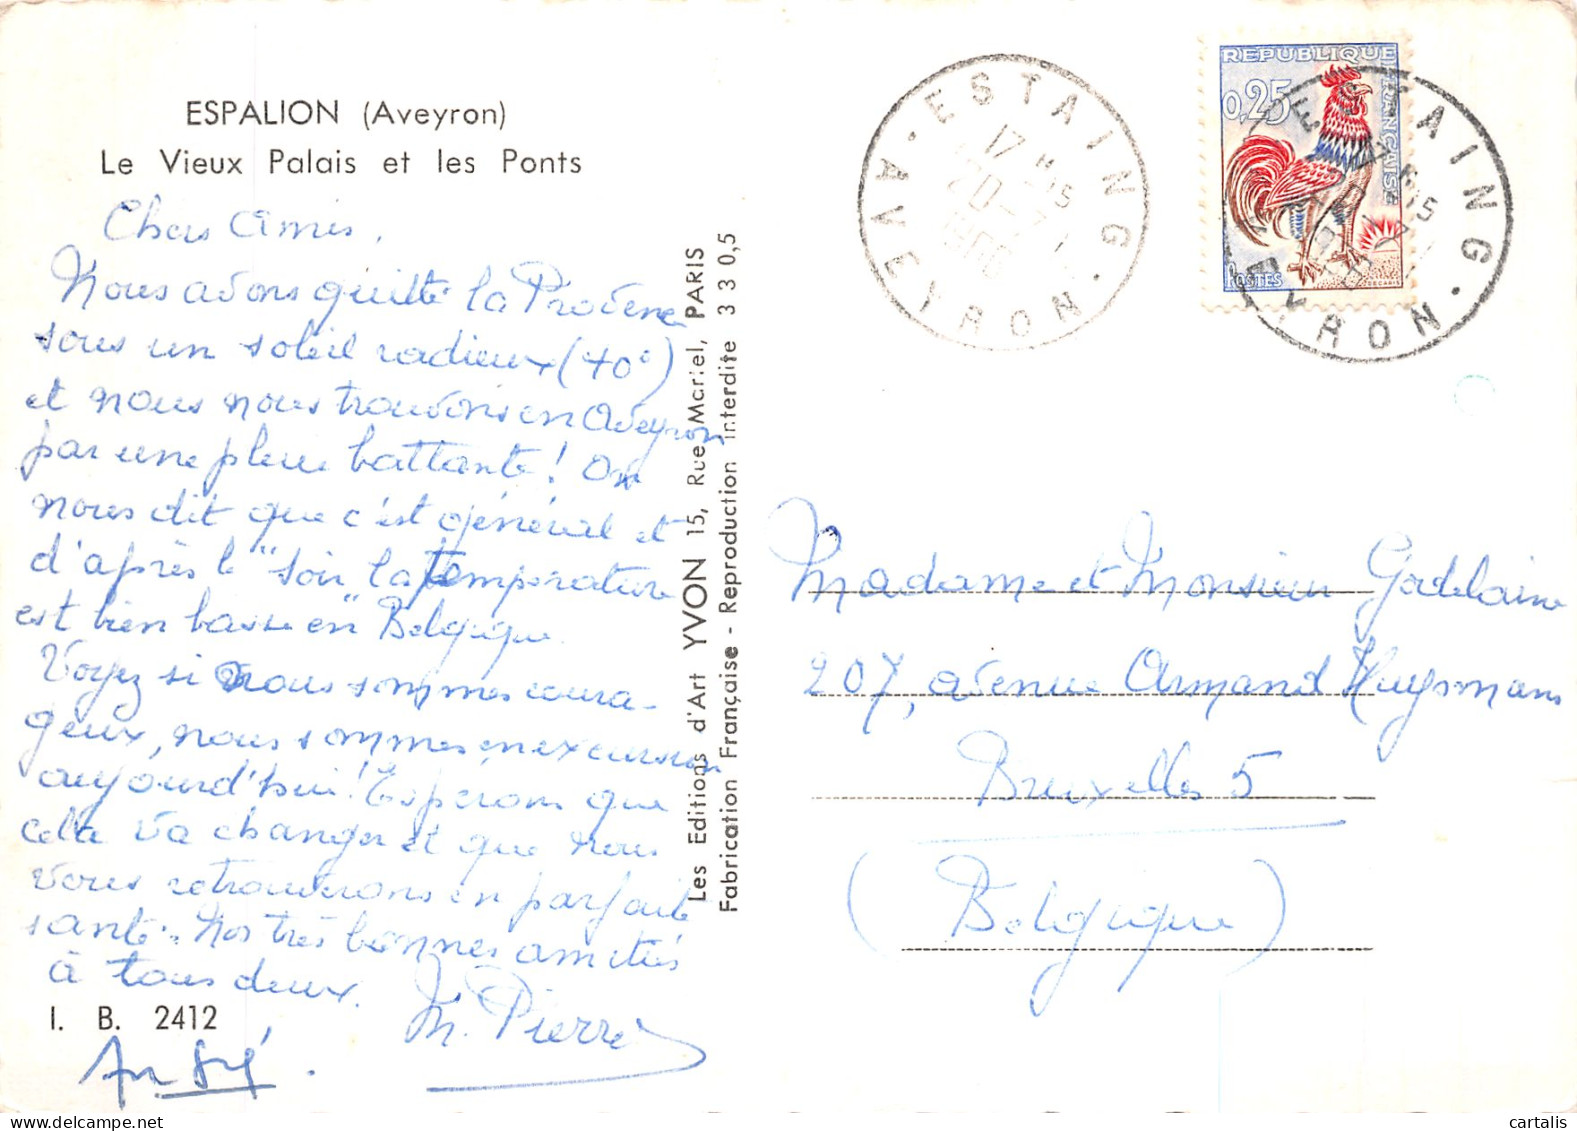 ESPALION (Aveyron)
Le Vieux Palais et les Ponts
Chers Amis,
Nous avons quitté la Provence
sous un soleil radieux (40°)
et nous nous trouvons en Aveyron
par une pluie battante ! On
nous dit que c'est général et
d'après le "soir la température
est bien basse en" Belgique.
Voyez si nous sommes coura-
geux, nous sommes en excursion
aujourd'hui ! Espérons que
cela va changer et que nous
vous retrouverons en parfaite
santé. Nos très bonnes amitiés
à tous deux.
M. Pierre
I. B. 2412
André.
Les Editions d'Art YVON 15, Rue Martel, PARIS
Fabrication Française - Reproduction interdite 3 3 0,5
ESTAING
17 H 15
AVEYRON
REPUBLIQUE FRANÇAISE
0,25
POSTES
DECARIS
ESTAING
AVEYRON
Madame et Monsieur Godelaine
207, avenue Armand Huysmans
Bruxelles 5
(Belgique)
cartalis